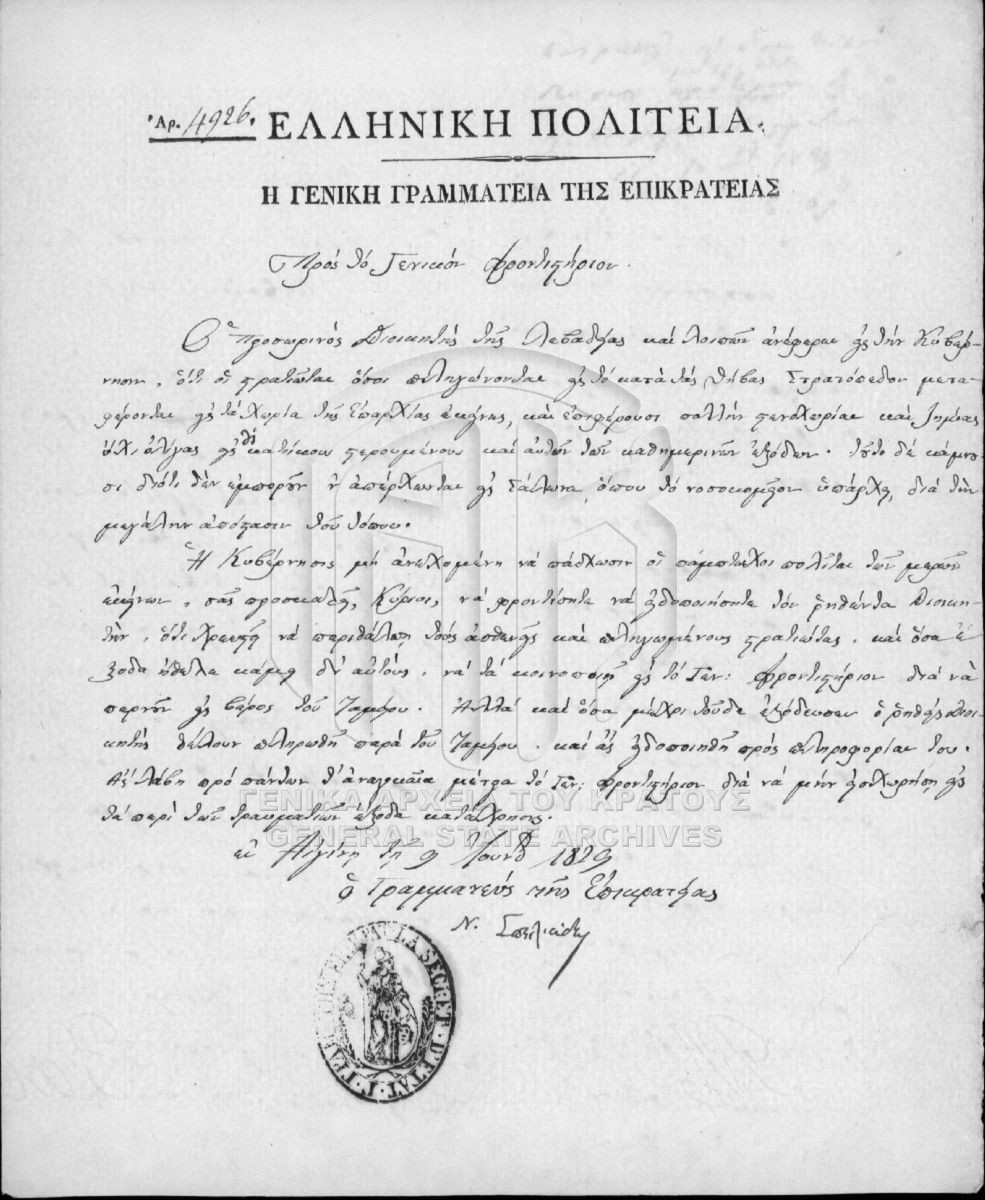 Ἀρ. 4926. ΕΛΛΗΝΙΚΗ ΠΟΛΙΤΕΙΑ.
Η ΓΕΝΙΚΗ ΓΡΑΜΜΑΤΕΙΑ ΤΗΣ ΕΠΙΚΡΑΤΕΙΑΣ
Πρὸς τὸ Γενικὸν Φροντιστήριον.
Ὁ Προσωρινὸς Διοικητὴς τῆς Λεβαδείας καὶ λοιπῶν ἀνέφερεν εἰς τὴν Κυβέρ-
νησιν, ὅτι οἱ στρατιῶται ὅσοι πληγώνονται εἰς τὸ κατὰ τὰς Θήβας Στρατόπεδον μετα-
φέρονται εἰς τὰ χωρία τῆς Ἐπαρχίας ἐκείνης, καὶ ἐπιφέρουσι πολλὴν στενοχωρίαν καὶ ζημίας
ὄχι ὀλίγας εἰς τοὺς κατοίκους στερουμένους καὶ αὐτῶν τῶν καθημερινῶν ἐξόδων. Τοῦτο δὲ κάμνου-
σι διότι δὲν ἐμποροῦν ν' ἀπέρχωνται εἰς Σάλωνα, ὅπου τὸ νοσοκομεῖον ὑπάρχει, διὰ τὴν
μεγάλην ἀπόστασιν τοῦ τόπου.
Ἡ Κυβέρνησις μὴ ἀνεχομένη νὰ πάσχωσιν οἱ πάμπτωχοι πολῖται τῶν μερῶν
ἐκείνων, σᾶς προσκαλεῖ, Κύριοι, νὰ φροντίσητε νὰ εἰδοποιήσητε τὸν ῥηθέντα Διοικη-
τὴν, ὅτι χρεωστεῖ νὰ περιθάλπῃ τοὺς ἀσθενεῖς καὶ πληγωμένους στρατιώτας, καὶ ὅσα ἔ-
ξοδα ἤθελε κάμει δι' αὐτοὺς, νὰ τὰ κοινοποιῇ εἰς τὸ Γεν: Φροντιστήριον διὰ νὰ
περνοῦν εἰς βάρος τοῦ Ταμείου. Ἀλλὰ καὶ ὅσα μέχρι τοῦδε ἐξώδευσεν ὁ ῥηθεὶς Διοι-
κητὴς θέλουν πληρωθῆ παρὰ τοῦ Ταμείου, καὶ ἂς εἰδοποιηθῇ πρὸς πληροφορίαν του.
Ἂς λάβῃ πρὸ πάντων τ' ἀναγκαῖα μέτρα τὸ Γεν: Φροντιστήριον διὰ νὰ μὴν εἰσχωρήσῃ εἰς
τὰ περὶ τῶν τραυματιῶν ἔξοδα κατάχρησις.
ΓΕΝΙΚΑ ΑΡΧΕΙΑ ΤΟΥ ΚΡΑΤΟΥΣ
GENERAL STATE ARCHIVES
ἐν Αἰγίνῃ τῇ 9 Ἰουνίου 1829
ὁ Γραμματεὺς τῆς Ἐπικρατείας
Ν. Σπηλιάδης
LA SECRET. D'ETAT.